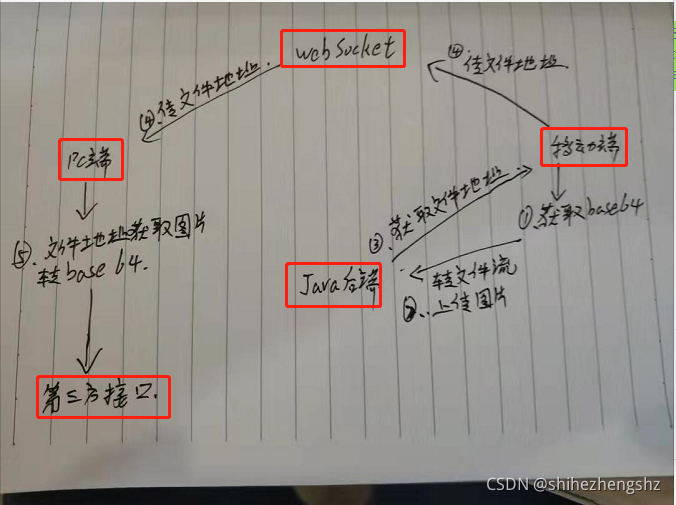 webSocket
④传文件地址
④.传文件地址.
PC端
移动端
①获取base64
③.获取文件地址
⑤.文件地址获取图片
转base64.
Java后端
转文件流
②.上传图片
第三方接口.
CSDN @shihezhengshz